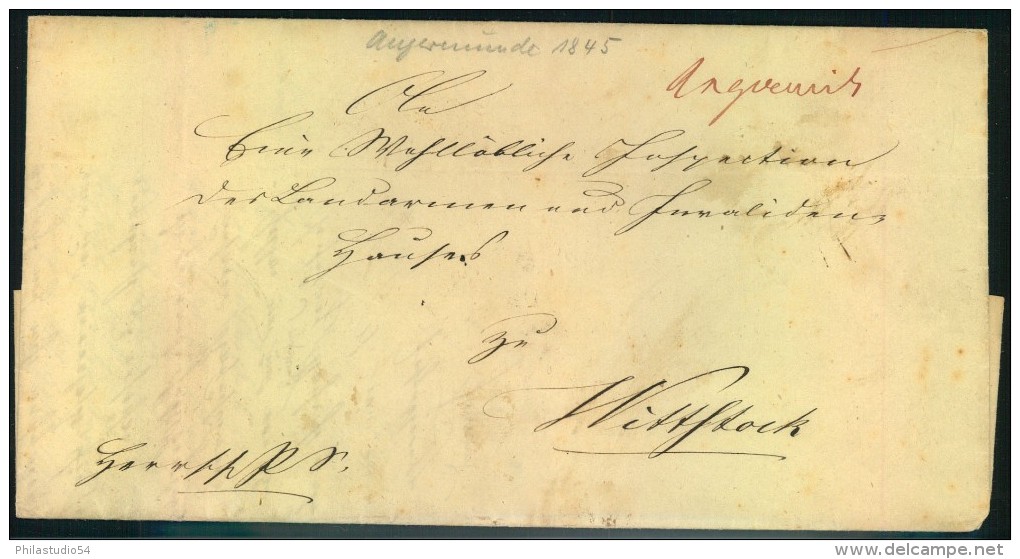 Angermünde 1845
Angermünde
An
Eine Wohllöbliche Inspection
des Landarmen und Invaliden-
Hauses
zu
Wittstock
Herrschl. P. S.
Philastudio54
www.delcampe.net